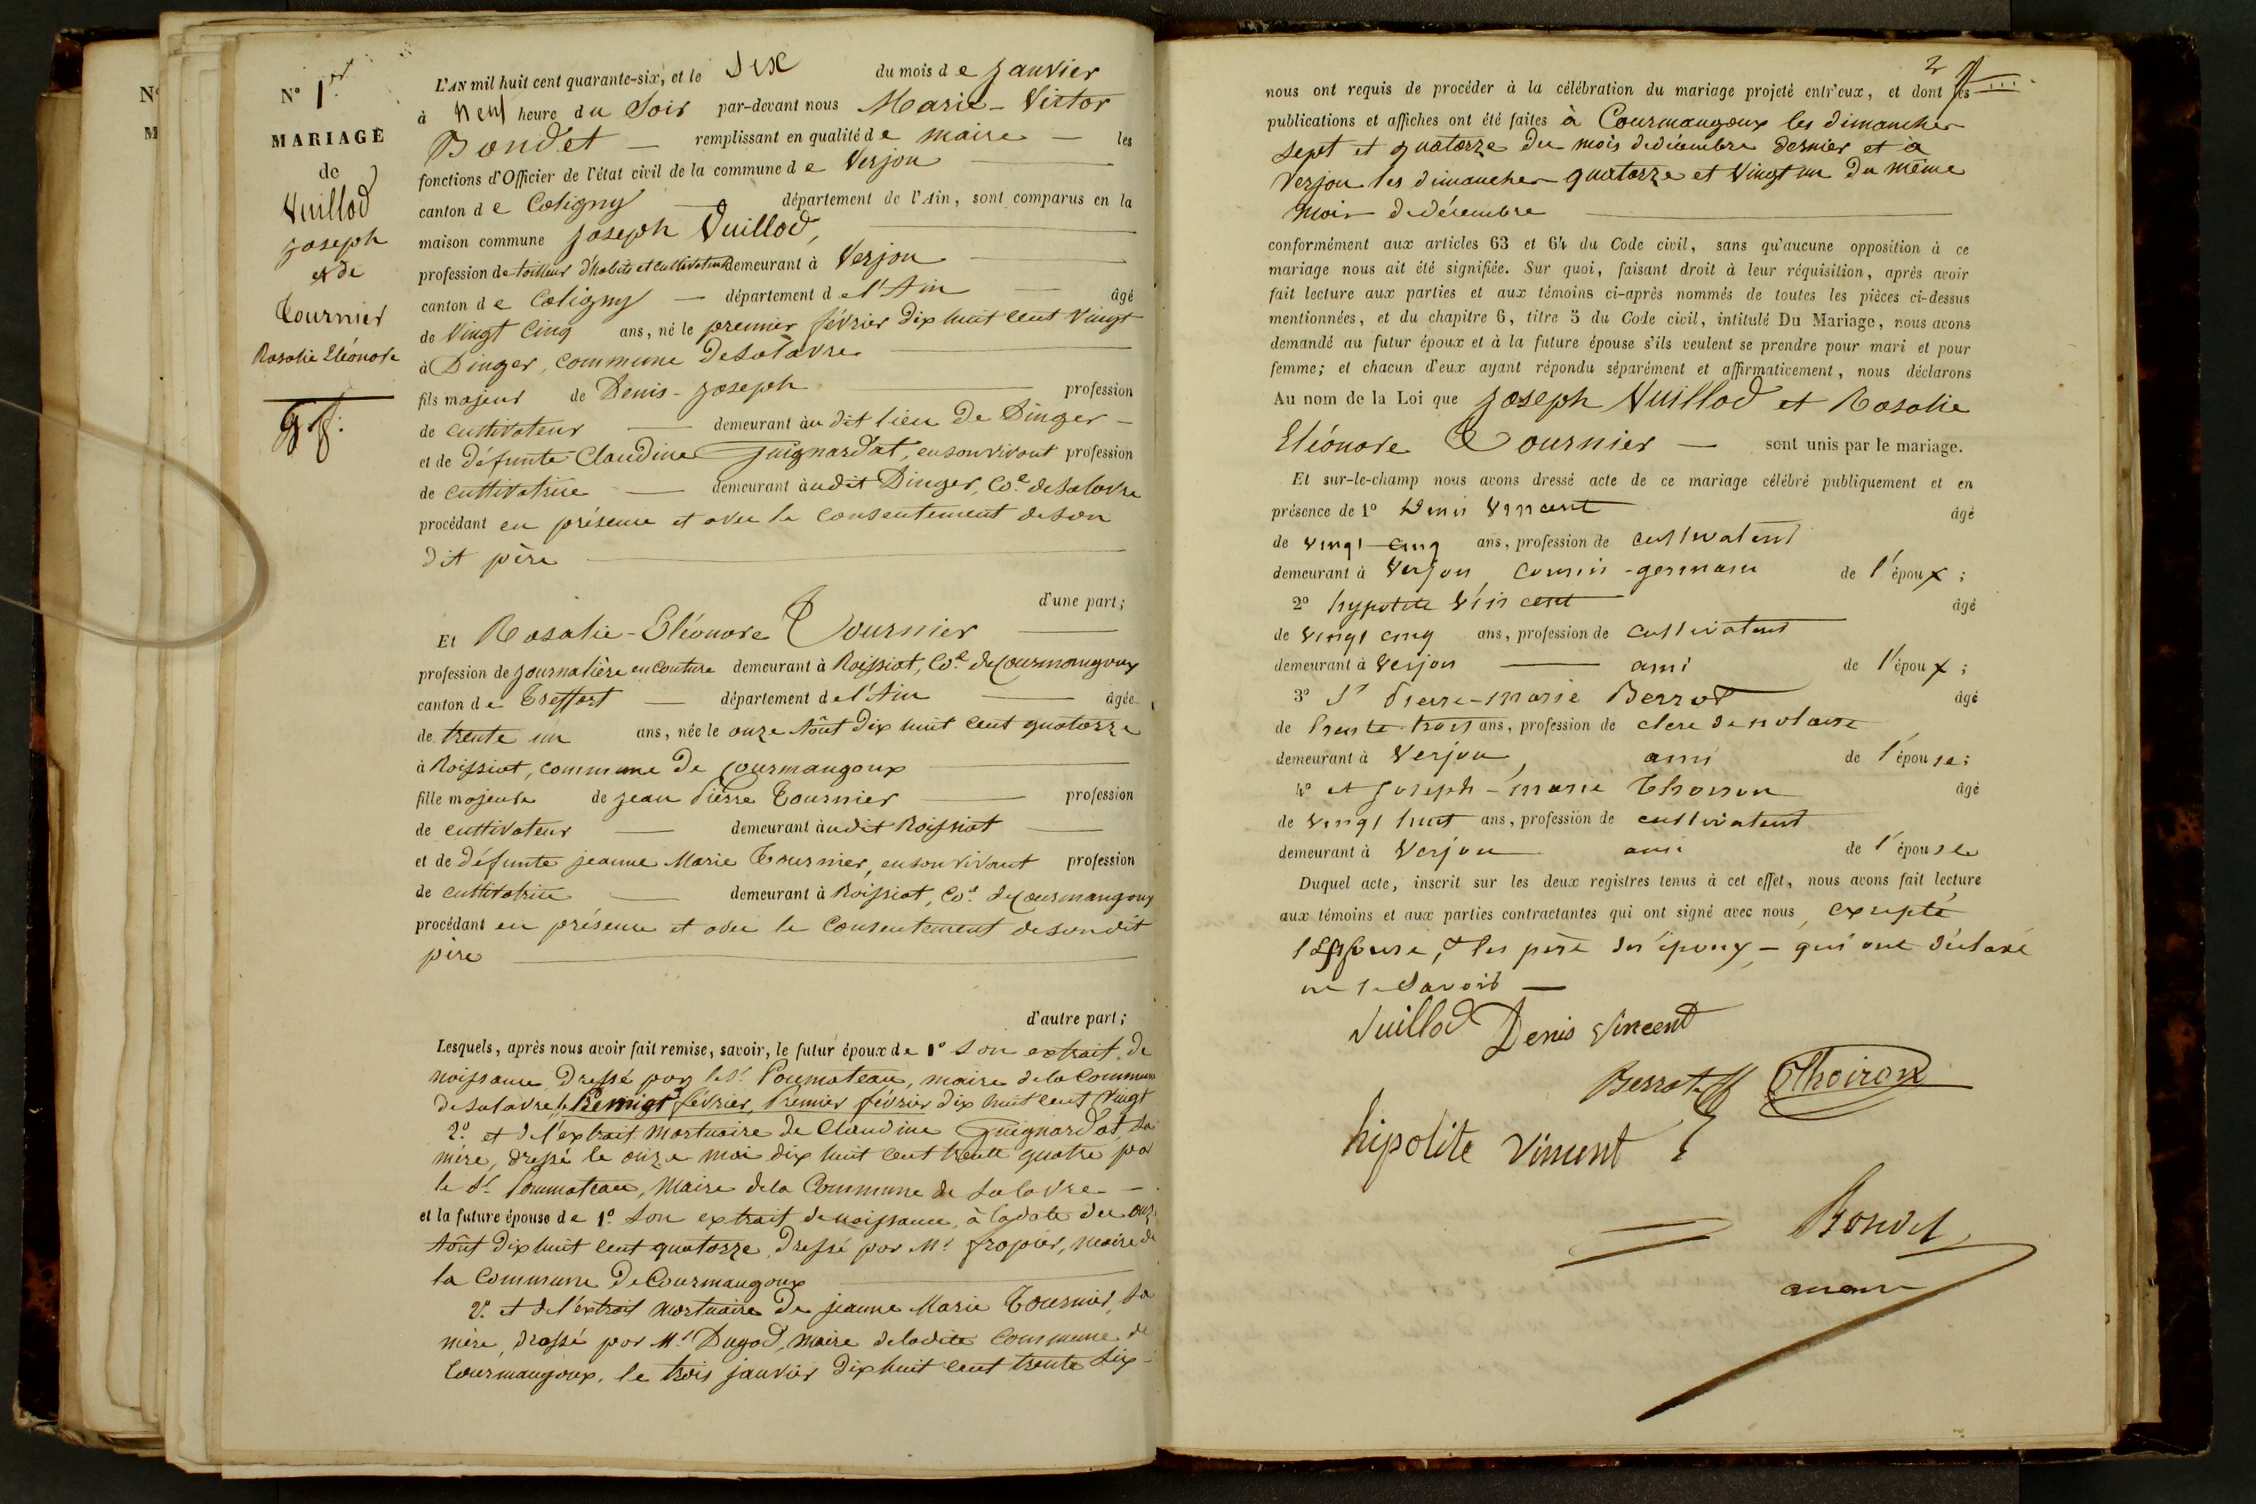 N° 1er
MARIAGE
de
Vuillod
Joseph
et de
Tournier
Rosalie Eléonore
L'AN mil huit cent quarante-six, et le Six du mois de Janvier
à neuf heure du Soir par-devant nous Marie-Victor
Bondet — remplissant en qualité de maire — les
fonctions d'Officier de l'état civil de la commune de Verjon
canton de Coligny département de l'Ain, sont comparus en la
maison commune Joseph Vuillod,
profession de tailleur d'habits et cultivateur demeurant à Verjon
canton de Coligny — département de l'Ain — âgé
de Vingt Cinq ans, né le premier février dix huit cent Vingt
à Dingier, commune de Salavre
fils majeur de Denis-Joseph profession
de cultivateur — demeurant au dit lieu de Dingier —
et de défunte Claudine Guignardat, en son vivant profession
de cultivatrice — demeurant audit Dingier, Co.e de Salavre
procédant en présence et avec le consentement de son
dit père
d'une part;
Et Rosalie-Eléonore Tournier
profession de journalière en couture demeurant à Roissiat, Co.e de Courmangoux
canton de Treffort — département de l'Ain — âgée
de trente un ans, née le onze Aôut dix huit cent quatorze
à Roissiat, commune de Courmangoux
fille majeure de jean Pierre Tournier — profession
de cultivateur — demeurant audit Roissiat
et de défunte jeanne Marie Tournier, en son vivant profession
de cultivatrice — demeurant à Roissiat, Co.e de Courmangoux
procédant en présence et avec le consentement de son dit
père
d'autre part;
Lesquels, après nous avoir fait remise, savoir, le futur époux de 1° son extrait de
naissance dressé par le Sr. Poumateau, maire de la Commune
de Salavre le Premier février, Premier février dix huit cent Vingt
2° et de l'extrait mortuaire de Claudine Guignardat, sa
mère, dressé le onze mai dix huit cent trente quatre par
le Sr. Poumateau, Maire de la Commune de Salavre —
et la future épouse de 1° son extrait de naissance, à la date du onze
Aôut dix huit cent quatorze, dressé par Mr. Fropier, maire de
la Commune de Courmangoux
2° et de l'extrait mortuaire de jeanne Marie Tournier, sa
mère, dressé par Mr Dugad, maire de ladite commune de
Courmangoux, le trois janvier dix huit cent trente six —
2
nous ont requis de procéder à la célébration du mariage projeté entr'eux, et dont les
publications et affiches ont été faites à Courmangoux les dimanches
sept et quatorze du mois de décembre dernier et à
Verjon les dimanches quatorze et Vingt un du même
mois de décembre
conformément aux articles 63 et 64 du Code civil, sans qu'aucune opposition à ce
mariage nous ait été signifiée. Sur quoi, faisant droit à leur réquisition, après avoir
fait lecture aux parties et aux témoins ci-après nommés de toutes les pièces ci-dessus
mentionnées, et du chapitre 6, titre 5 du Code civil, intitulé Du Mariage, nous avons
demandé au futur époux et à la future épouse s'ils veulent se prendre pour mari et pour
femme; et chacun d'eux ayant répondu séparément et affirmativement, nous déclarons
Au nom de la Loi que Joseph Vuillod et Rosalie
Eléonore Tournier — sont unis par le mariage.
Et sur-le-champ nous avons dressé acte de ce mariage célébré publiquement et en
présence de 1° Denis Vincent âgé
de vingt cinq ans, profession de cultivateur
demeurant à Verjon, cousin-germain de l'époux;
2° hypolite Vincent âgé
de vingt cinq ans, profession de cultivateur
demeurant à Verjon — ami de l'époux;
3° Sr Pierre-marie Berrod âgé
de trente trois ans, profession de clerc de notaire
demeurant à Verjon, ami de l'épouse;
4° et joseph-marie Thoiron âgé
de vingt huit ans, profession de cultivateur
demeurant à Verjon ami de l'épouse
Duquel acte, inscrit sur les deux registres tenus à cet effet, nous avons fait lecture
aux témoins et aux parties contractantes qui ont signé avec nous, excepté
l'épouse, & les père des époux — qui ont déclaré
ne le savoir —
Vuillod Denis Vincent
Berrod Thoiron
hipolite Vincent
Bondet
maire